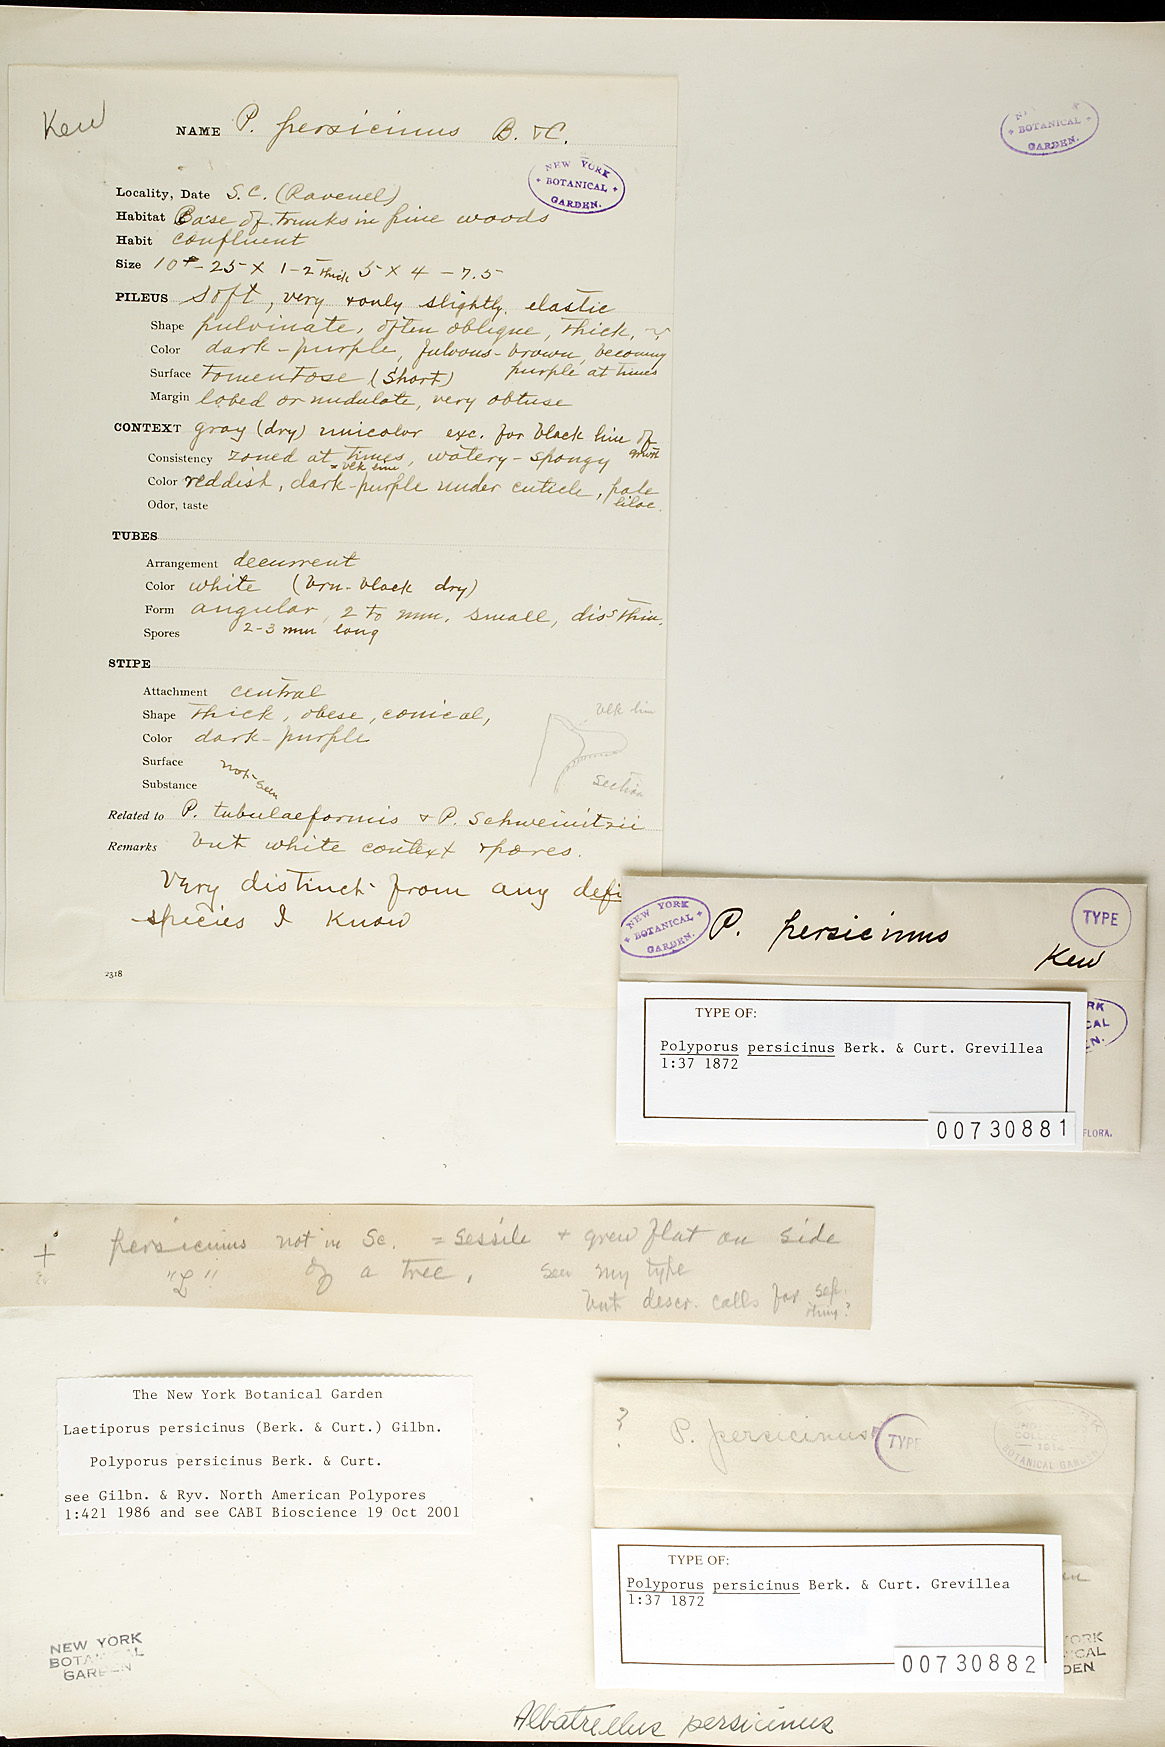 Kew
NAME P. persicinus B. & C.
NEW YORK
BOTANICAL
GARDEN.
BOTANICAL
GARDEN.
Locality, Date S.C. (Ravenel)
Habitat Base of trunks in pine woods
Habit confluent
Size 10 - 25 X 1-2 thick 5 X 4 - 7.5
PILEUS soft, very & only slightly elastic
Shape pulvinate, often oblique, thick,
Color dark-purple, fulvous-brown, becoming
purple at times
Surface tomentose (short)
Margin lobed or undulate, very obtuse
CONTEXT gray (dry) unicolor exc. for black line of
growth
Consistency zoned at times, watery-spongy
= blk line
Color reddish, dark-purple under cuticle, pale
lilac.
Odor, taste
TUBES
Arrangement decurrent
Color white (brn-black dry)
Form angular, 2 to mm. small, diss thin.
2-3 mm long
Spores
STIPE
Attachment central
Shape thick, obese, conical,
Color dark-purple
Surface
not seen
Substance
blk lin
section
Related to P. tubulaeformis & P. Schweinitzii
Remarks but white context & pores.
Very distinct from any defi
species I know
2318
NEW YORK
BOTANICAL
GARDEN.
P. persicinus
TYPE
Kew
RK
CAL
N.
TYPE OF:
Polyporus persicinus Berk. & Curt. Grevillea
1:37 1872
00730881
FLORA.
persicinus not in Sc. = sessile & grew flat on side
"L" of a tree. see my type
but descr. calls for sep.
thing?
The New York Botanical Garden
Laetiporus persicinus (Berk. & Curt.) Gilbn.
Polyporus persicinus Berk. & Curt.
see Gilbn. & Ryv. North American Polypores
1:421 1986 and see CABI Bioscience 19 Oct 2001
?
P. persicinus
TYPE
BOTANICAL GARDEN
TYPE OF:
Polyporus persicinus Berk. & Curt. Grevillea
1:37 1872
00730882
YORK
ICAL
DEN
NEW YORK
BOTA AL
GARDEN
Albatrellus persicinus